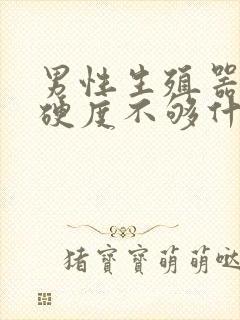 男性生殖器
硬度不够什
猪寶寶萌萌哒